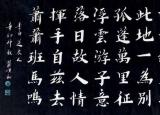 此地一為別
孤蓬萬里征
浮雲遊子意
落日故人情
揮手自茲去
蕭蕭班馬鳴
李白送友人